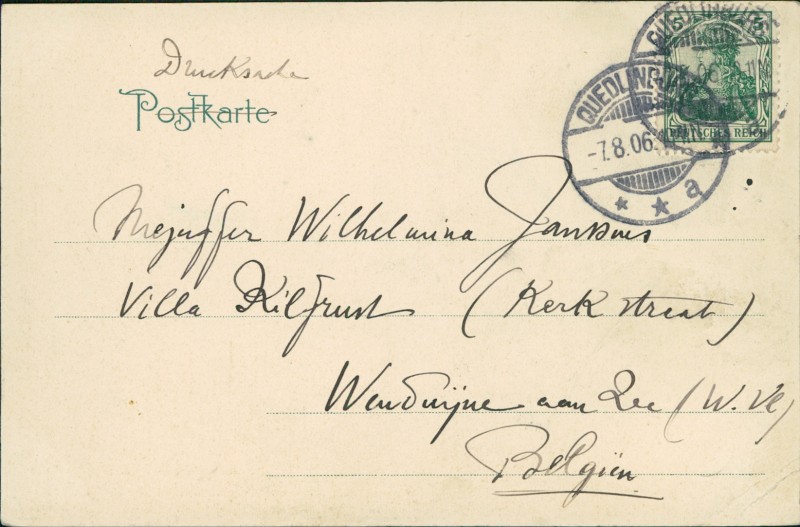 Drucksache
Postkarte
QUEDLINBURG
QUEDLINBURG
-7.8.06.
a
5 5
DEUTSCHES REICH
Mejuffer Wilhelmina Janssens
Villa Kilfrust (Kerkstraat)
Wenduijne aan Zee (W. Vl)
Belgiën